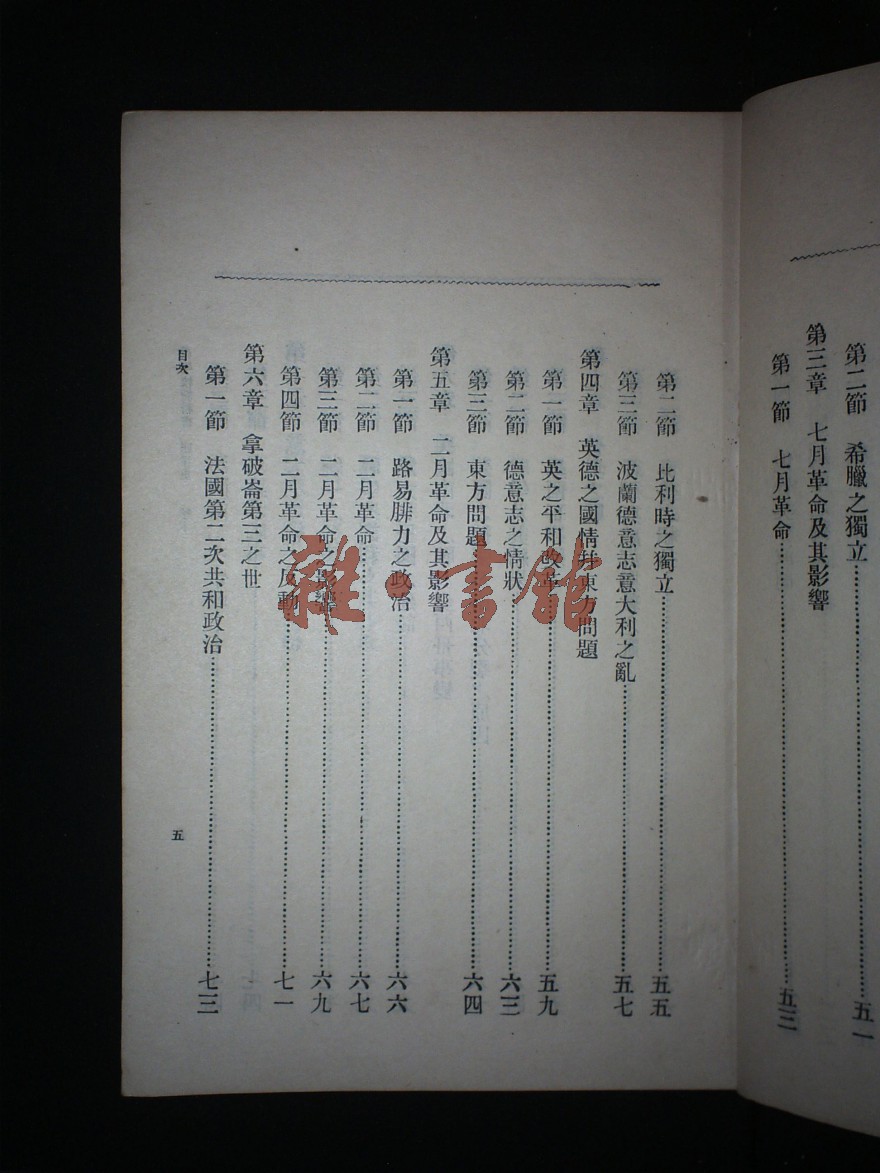 第二節　希臘之獨立………五一
第三章　七月革命及其影響
第一節　七月革命………五三
第二節　比利時之獨立………五五
第三節　波蘭德意志意大利之亂………五七
第四章　英德之國情并東方問題
第一節　英之平和改革………五九
第二節　德意志之情狀………六三
第三節　東方問題………六四
第五章　二月革命及其影響
第一節　路易腓力之政治………六六
第二節　二月革命………六七
第三節　二月革命之影響………六九
第四節　二月革命之反動………七一
第六章　拿破崙第三之世
第一節　法國第二次共和政治………七三
目次　五
雜·書館